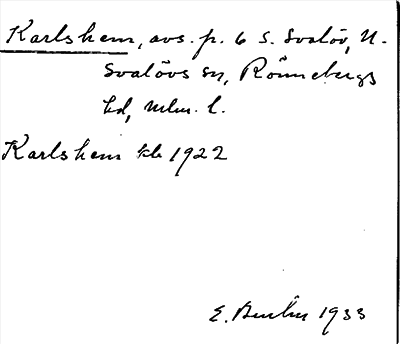 Karlshem, avs. p. 6 S. Svalöv, N.
Svalövs sn, Rönnebergs
hd, Mlm. l.
Karlshem kb 1922
E. 1933